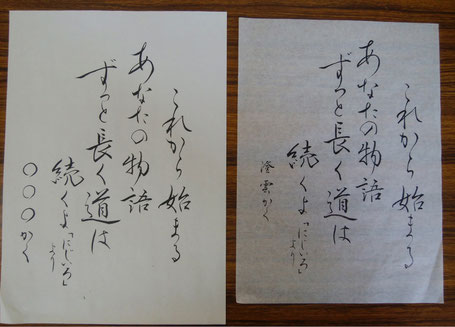 これから始まる
あなたの物語
ずっと長く道は
続くよ「にじいろ」より
〇〇〇かく
これから始まる
あなたの物語
ずっと長く道は
続くよ「にじいろ」より
澄雲かく